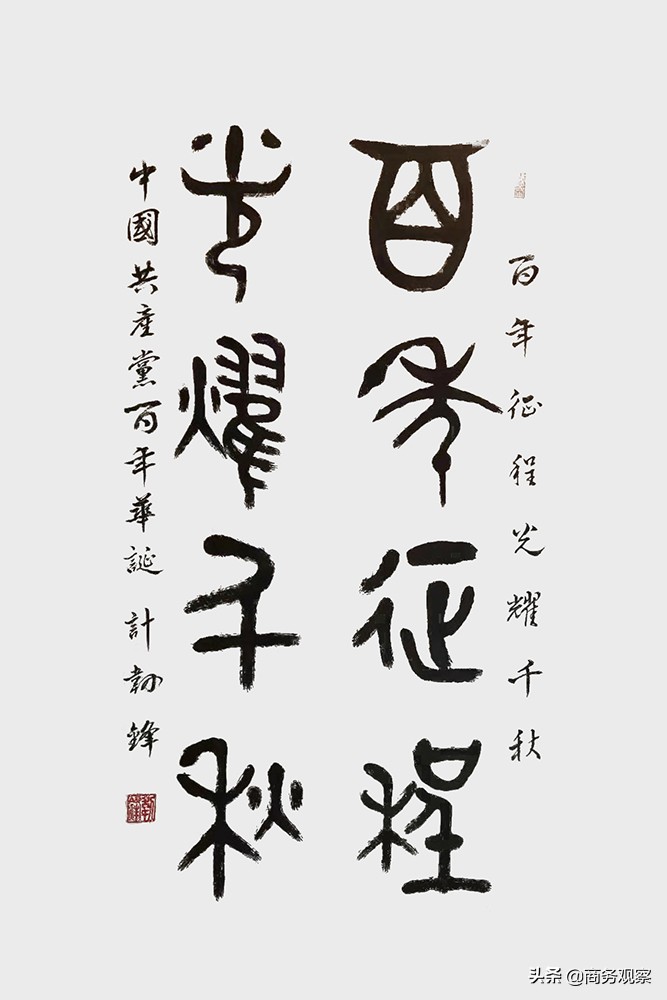 百年征程光耀千秋
百年征程
光燿千秋
中國共產黨百年華誕 計勃鋒
头条 @商务观察